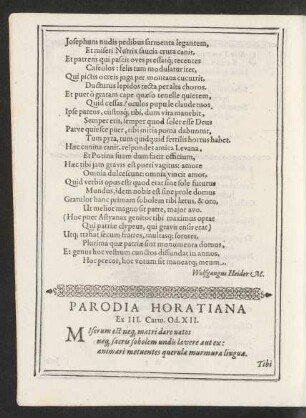 Josephum nudis pedibus sarmenta legantem,
Et miseri Nutrix faucis crura canit.
Et patrem qui pascit oves pressatq; recentes
Caseolos: felis tum modulatur iter,
Qui pictis ocreis pago per montana cucurrit.
Ducturus lepidos tecta per alta choros.
Et puer ô gratam cape quæso tenelle quietem,
Quid cessas? oculos pupule claude tuos.
Ipse parens, custosq; tibi, dum vita manebit,
Semper eris, semper quod solet esse Deus
Parve quiesce puer, tibi mitia poma dabuntur,
Tum pyra, tum quidquid fertilis hortus habet.
Hæc cunina canit. respondet amica Levana,
Et Potina suum dum facit officium,
Hæc tibi jam graves est pueri vagitus amore
Omnia dulcescunt: omnia vincit amor.
Quid verbis opus est? quod erat sine sole futurus
Mundus, idem nobis est sine prole domus
Gratulor hanc primam sobolem tibi lætus, & oro,
Ut melior magno sit patre, major avo.
(Hoc puer Astyanax genitor tibi maximus optat
Qui patriæ clypeus, qui gravis ensis erat)
Utq; trahat secum fratres, multasq; sorores,
Plurima quæ patriæ sint monumenta domus,
Et genus hoc vestrum cunctos diffundat in annos,
Hoc precor, hoc votum sit maneatq; meum.
Wolfgangus Heider M.
PARODIA HORATIANA
Ex III. Carm. Od. XII.
Miserum est neq, matri dare natos
neq, sacris sobolem undis lavere aut ex:
animari metuentes querulæ murmura linguæ.
Tibi